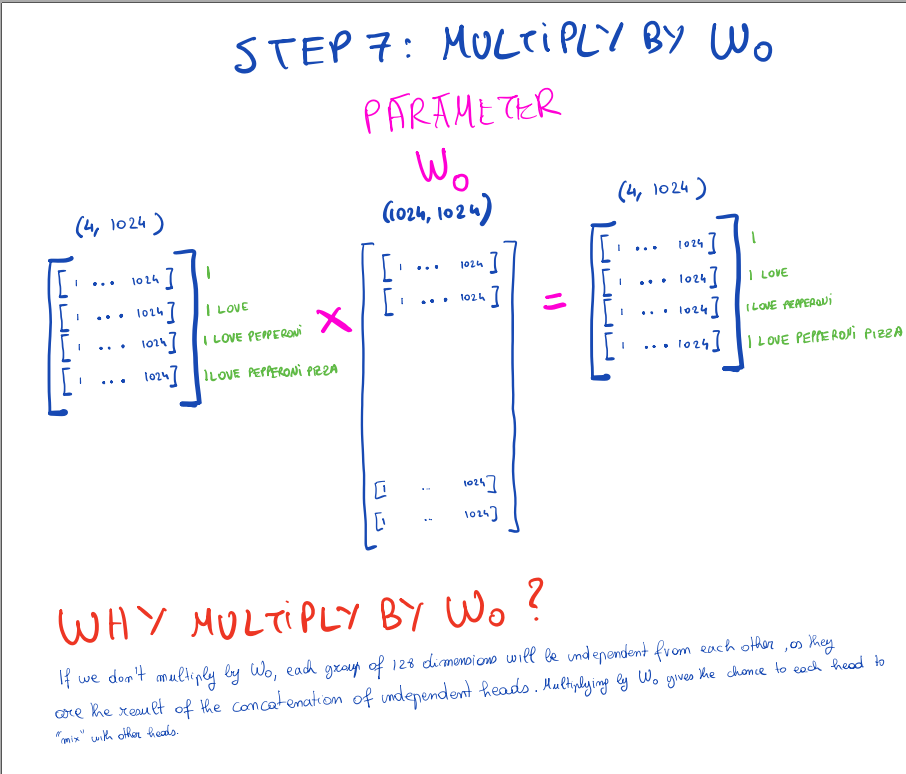 STEP 7: MULTIPLY BY Wo
PARAMETER
Wo
(4, 1024)
(1024, 1024)
(4, 1024)
[1 ... 1024] I
[1 ... 1024] I LOVE
[1 ... 1024] I LOVE PEPPERONi
[1 ... 1024] I LOVE PEPPERONi PIZZA
×
[1 ... 1024]
[1 ... 1024]
[1 .. 1024]
[1 .. 1024]
=
[1 ... 1024] I
[1 ... 1024] I LOVE
[1 ... 1024] I LOVE PEPPERONi
[1 ... 1024] I LOVE PEPPERONi PIZZA
WHY MULTIPLY BY Wo?
If we don't multiply by Wo, each group of 128 dimensions will be independent from each other, as they
are the result of the concatenation of independent heads. Multiplying by Wo gives the chance to each head to
"mix" with other heads.